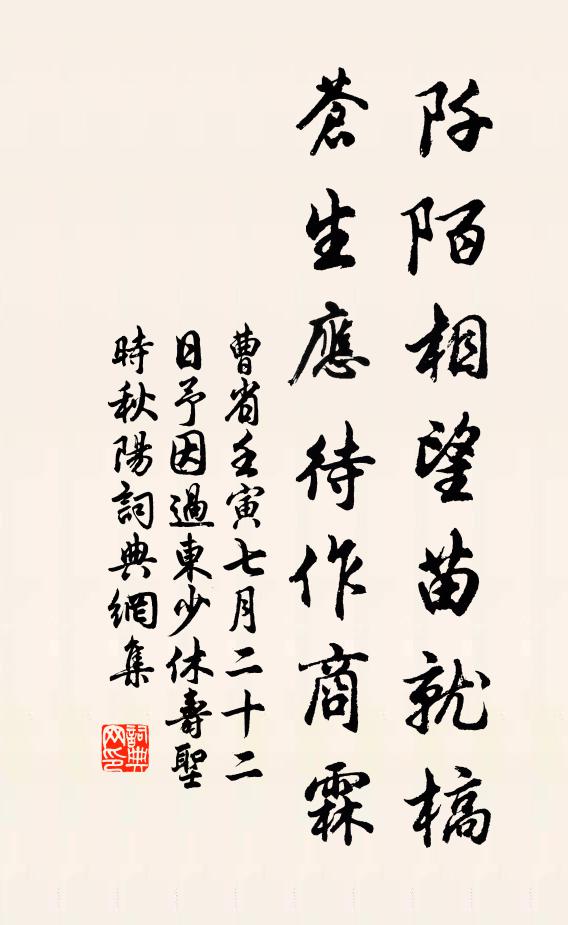 阡陌相望苗就槁
蒼生應待作商霖
曹省壬寅七月二十二
日予因過東少休壽聖
時秋陽詞典網集
詞典網印